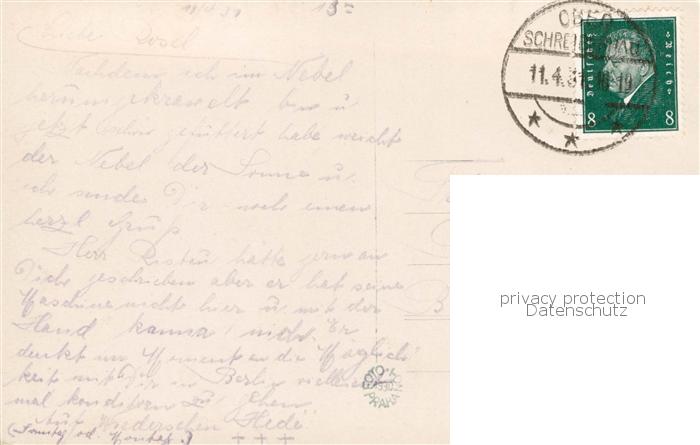 11/4 31
Liebe Rosel
Nachdem ich im Nebel
herumgekraxelt bin u
jetzt schön gefuttert habe weicht
der Nebel der Sonne u.
ich sende Dir noch einen
herzl Gruß
Herr hätte gern an
Dich geschrieben aber er hat seine
Maschine nicht hier u. mit der
Hand kanna nicht. Er
denkt im Moment an die Möglich
keit mit Dir in Berlin
mal zu gehen
Auf Wiedersehen Hede
(Sonntag od. Montag)
+++
OBER
SCHREIBERHAU
11.4.31
Deutsches Reich
8 8
FOTO
1930
PRAHA
privacy protection
Datenschutz